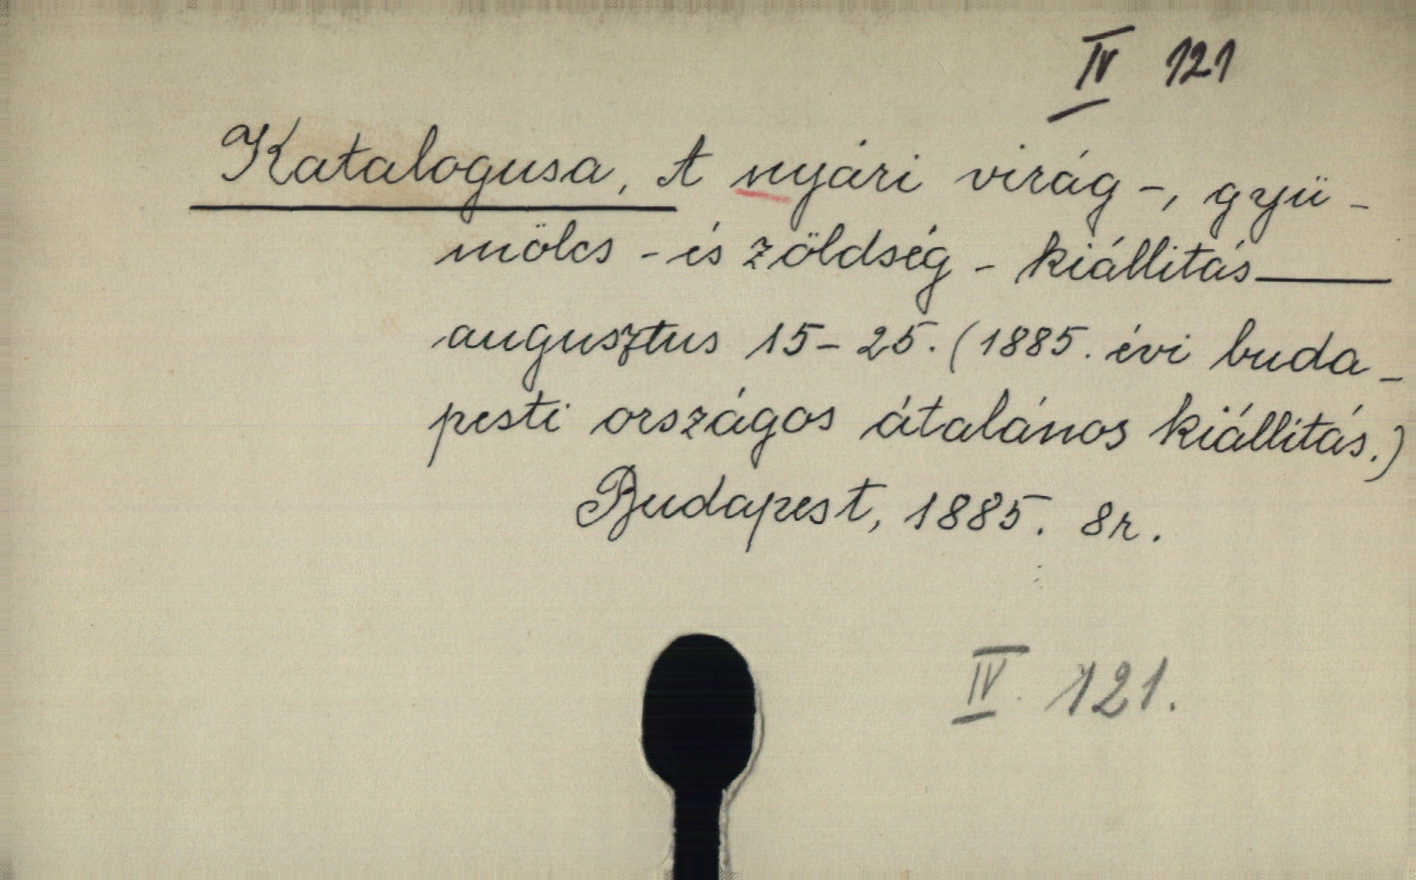 IV 121
Katalogusa, A nyári virág-, gyü-
mölcs - és zöldség - kiállitás ——
augusztus 15-25. (1885. évi buda-
pesti országos átalános kiállitás.)
Budapest, 1885. 8r.
IV. 121.